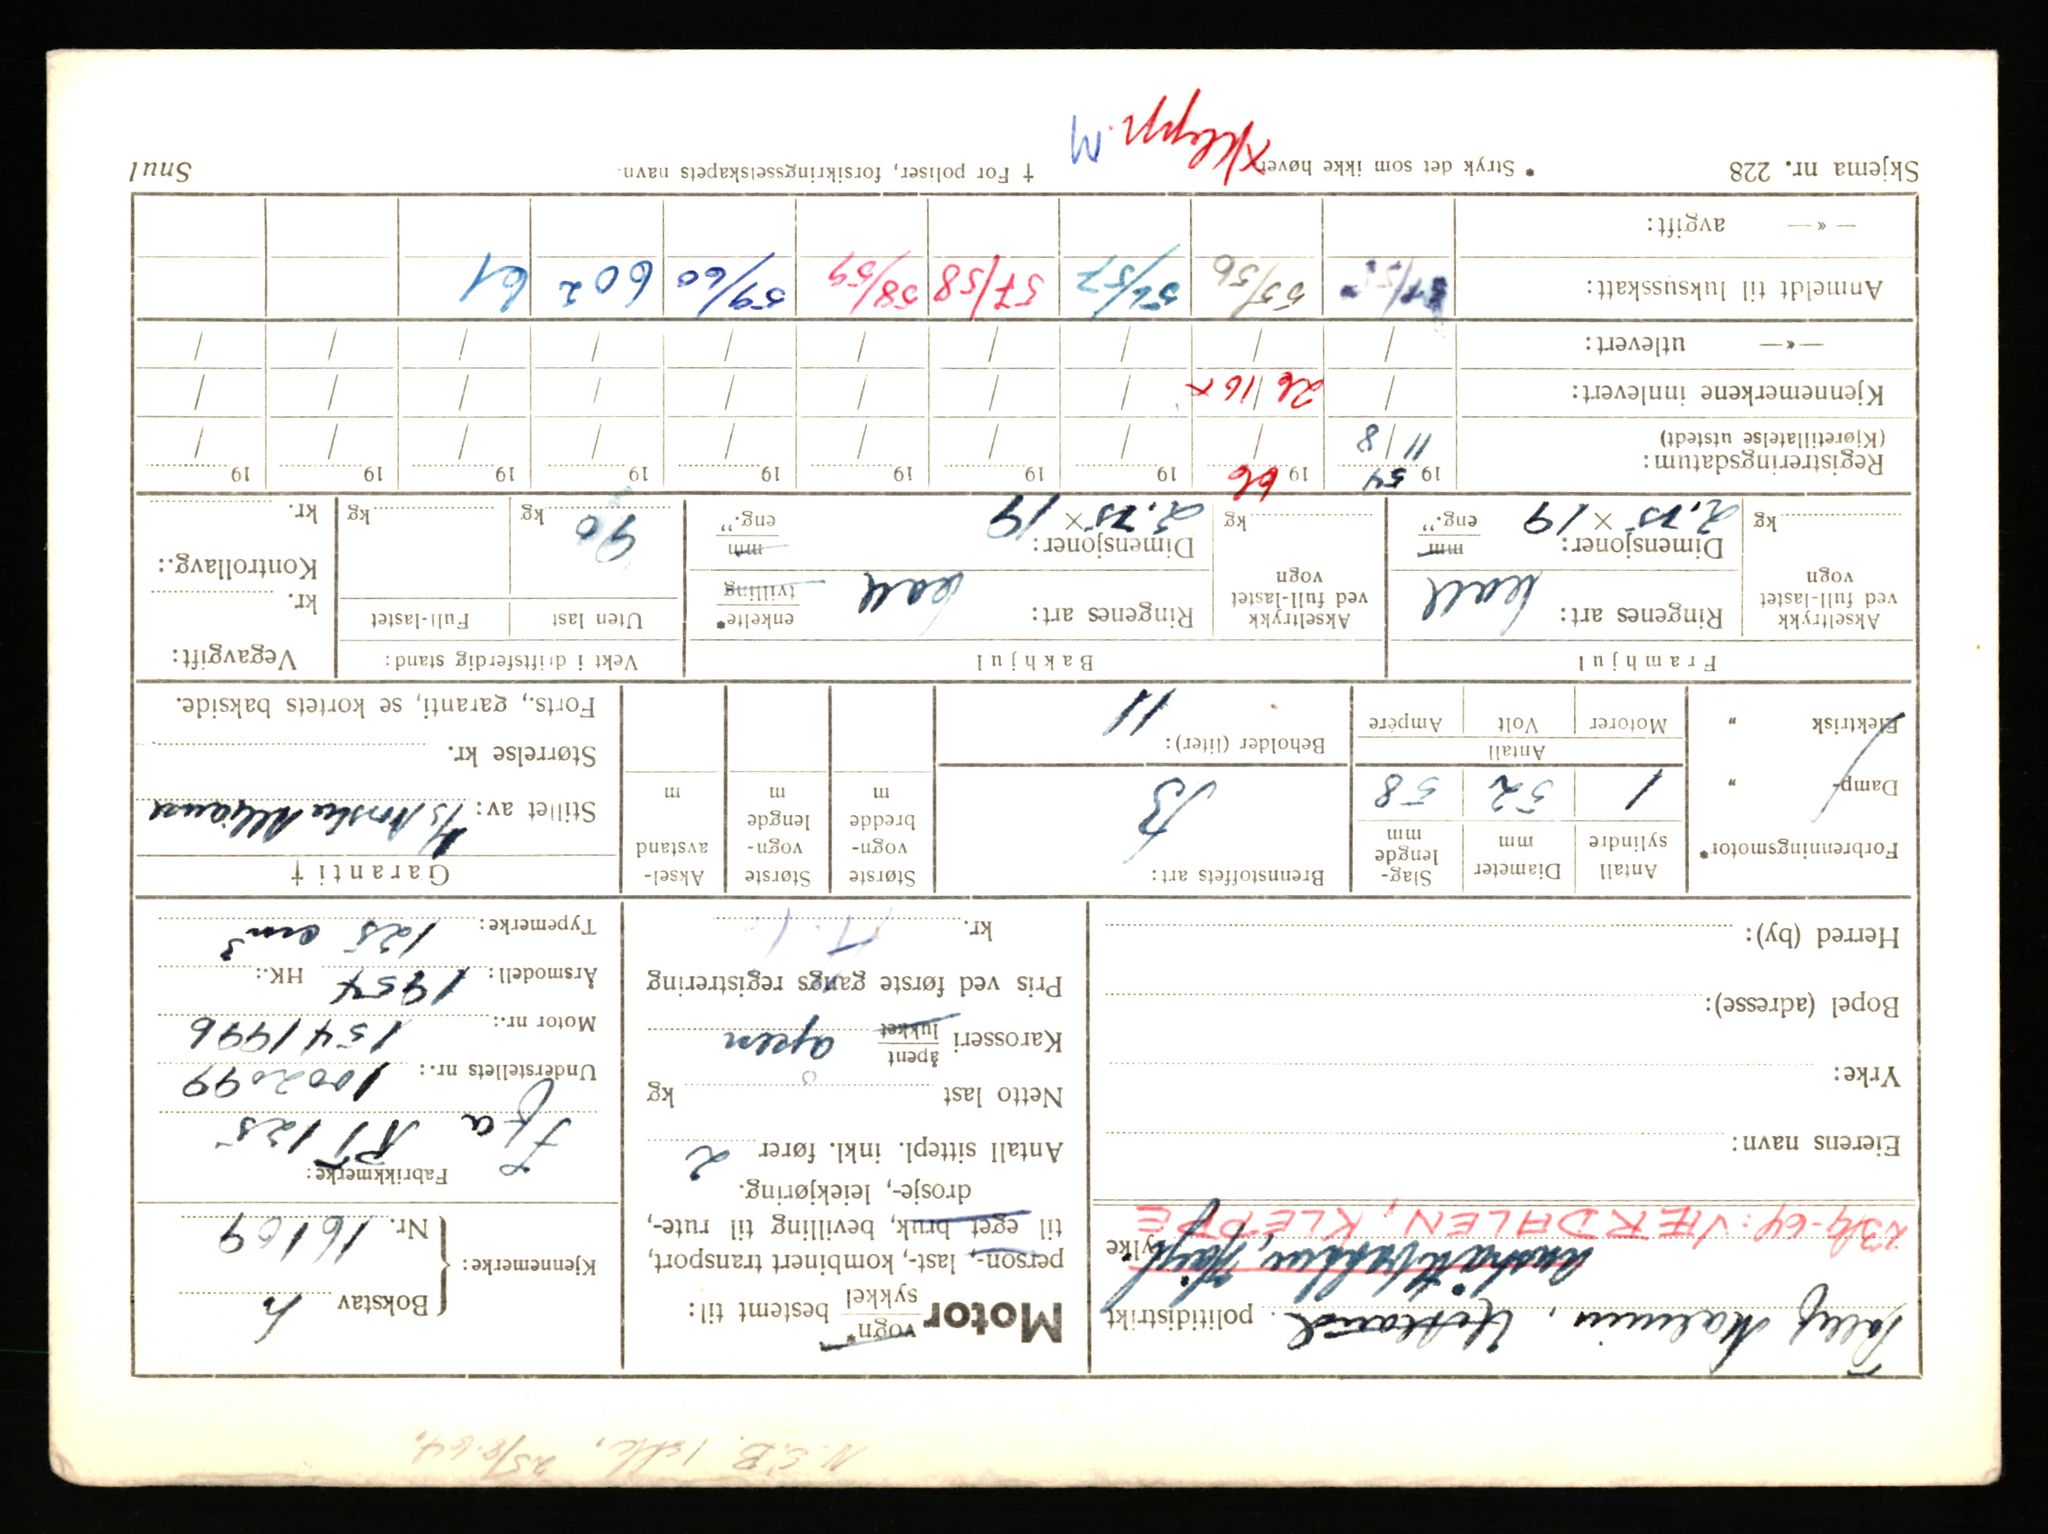 N.S.B. 25/8.64.
Tollef Malmin,
politidistrikt
fylke
23/9-64: VERDALEN, KLEPPE
Eierens navn:
Yrke:
Bopel (adresse):
Herred (by):
Motor vogn* sykkel bestemt til:
person-, last-, kombinert transport,
til eget bruk, bevilling til rute-,
drosje-, leiekjøring.
Antall sittepl. inkl. fører 2
Netto last kg
Karosseri åpent lukket åpen
Pris ved første gangs registrering
kr.
Kjennemerke: Bokstav
Nr. 16109
Fabrikkmerke:
RT 125
Understellets nr.: 1002099
Motor nr.: 1541996
Årsmodell: 1954 HK.:
Typemerke: 125 cm³
Forbrenningsmotor*
Damp- „
Elektrisk „
Antall sylindre 1
Diameter mm 52
Slag-lengde mm 58
Antall
Motorer Volt Ampére
Brennstoffets art: B
Beholder (liter): 11
Største vogn-bredde m
Største vogn-lengde m
Aksel-avstand m
Garanti †
Stillet av: A/S Norske Alliance
Størrelse kr.
Forts., garanti, se kortets bakside.
Framhjul
Akseltrykk ved full-lastet vogn kg
Ringenes art:
Dimensjoner: mm eng.”
2.75 × 19
Bakhjul
Akseltrykk ved full-lastet vogn kg
Ringenes art: enkelte* tvilling
Dimensjoner: mm eng.”
2.75 × 19
Vekt i driftsferdig stand:
Uten last Full-lastet
90 kg kg
Vegavgift:
kr.
Kontrollavg.:
kr.
Registreringsdatum: 1954 1966 19 19 19 19 19 19 19 19
(Kjøretillatelse utstedt) 11/8 / / / / / / / / /
Kjennemerkene innlevert: / 26/16 x / / / / / / / /
—«— utlevert: / / / / / / / / / /
Anmeldt til luksusskatt: 55/56 56/57 57/58 58/59 59/60 602 61
—«— avgift:
Skjema nr. 228 * Stryk det som ikke høver. † For poliser, forsikringsselskapets navn. Snul
x Klepp. M